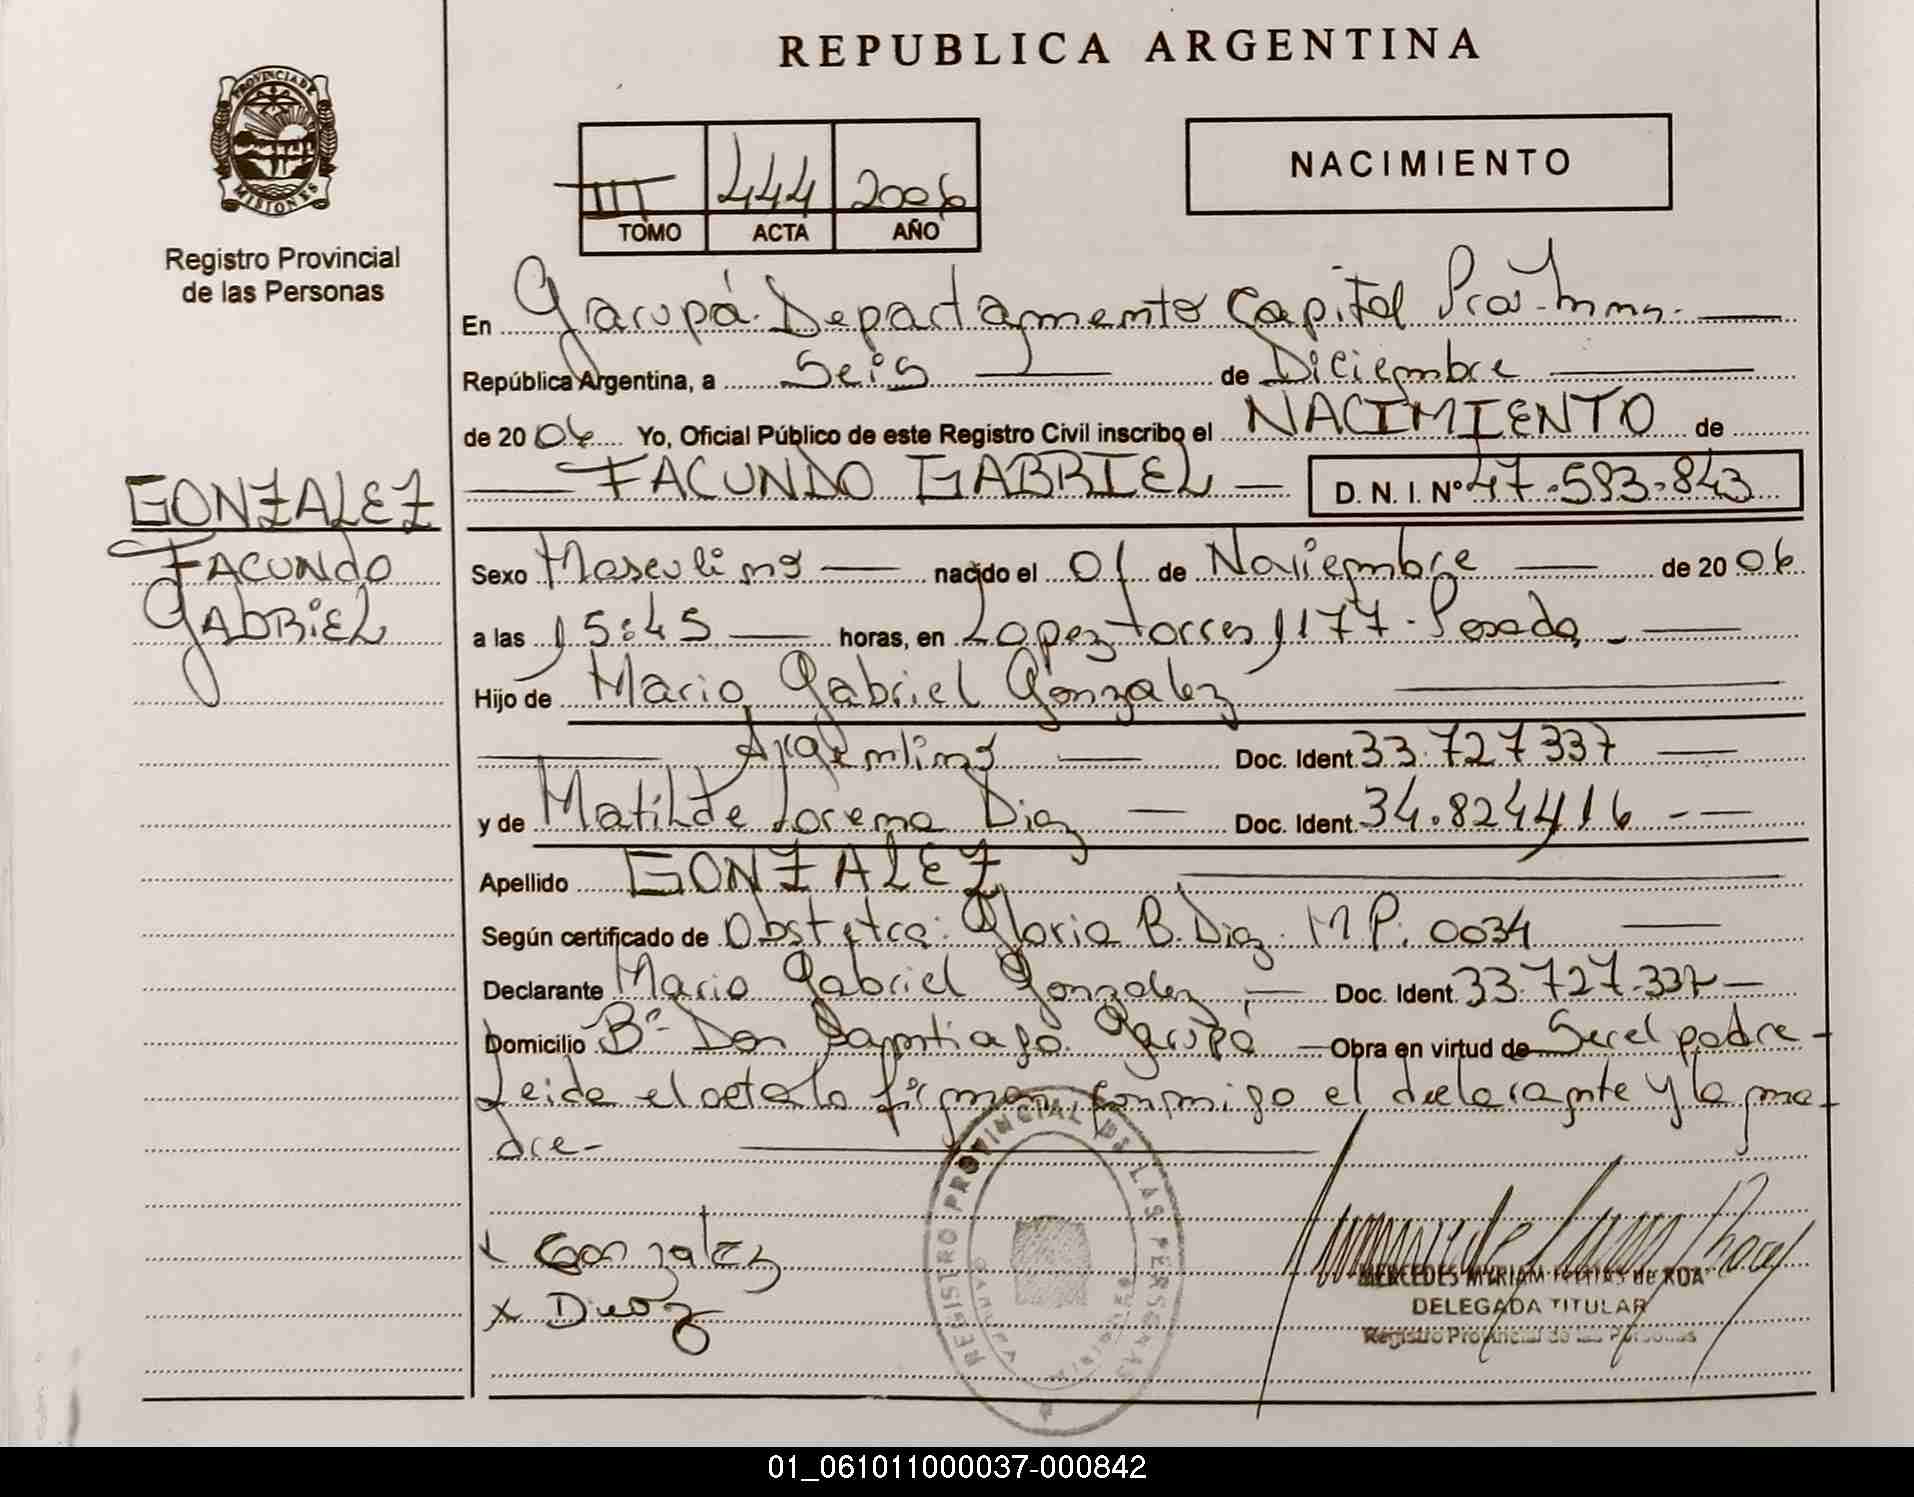 REPUBLICA ARGENTINA
PROVINCIA DE
MISIONES
Registro Provincial
de las Personas
III 444 2006
TOMO ACTA AÑO
NACIMIENTO
En Garupá. Departamento Capital
República Argentina, a Seis de Diciembre
de 20 06 Yo, Oficial Público de este Registro Civil inscribo el NACIMIENTO de
FACUNDO GABRIEL D. N. I. Nº 47.593.843
GONZALEZ
FACUNDO
GABRIEL
Sexo Masculino nacido el 01 de Noviembre de 20 06
a las 15:45 horas, en Lopez torres 1177. Posadas
Hijo de Mario Gabriel Gonzalez
Argentino Doc. Ident. 33.727337
y de Matilde Lorena Diaz Doc. Ident. 34.824416
Apellido GONZALEZ
Según certificado de Obstetra: Gloria B. Diaz. M P. 0034
Declarante Mario Gabriel Gonzalez Doc. Ident. 33.727.337
Domicilio Bº Don Santiago Garupá Obra en virtud de Ser el padre-
Leida el acta la firman conmigo el declarante y la ma-
dre-
REGISTRO PROVINCIAL DE LAS PERSONAS
x Gonzalez
x Diaz
MERCEDES MYRIAM de ROA
DELEGADA TITULAR
Registro Provincial de las Personas
01_061011000037-000842